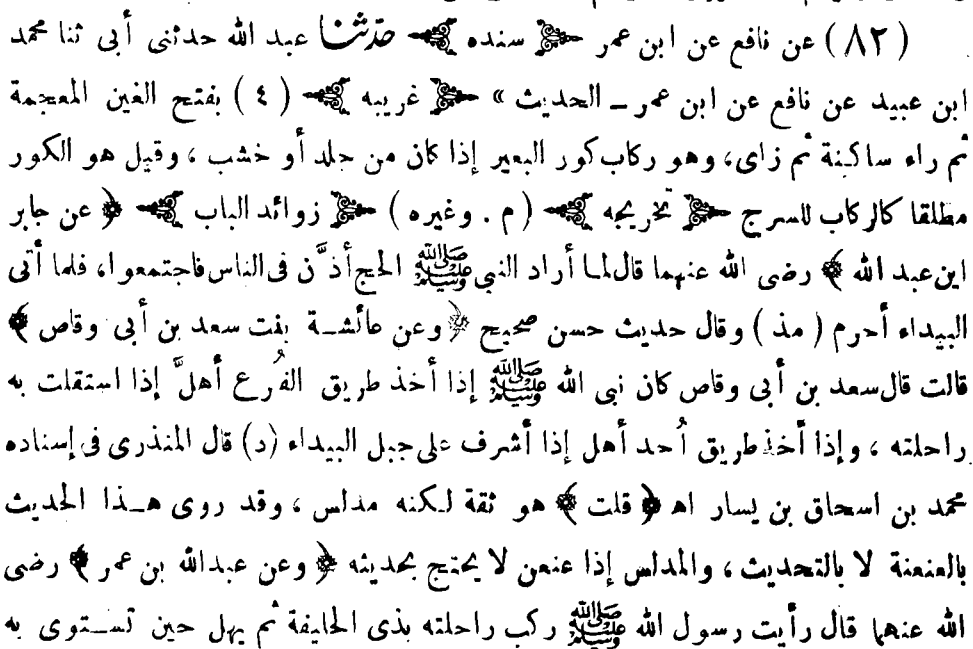 (٨٢) عن نافع عن ابن عمر ﴿ سنده ﴾ حدثنا عبد الله حدثنى أبى ثنا محمد
ابن عبيد عن نافع عن ابن عمر ــ الحديث » ﴿ غريبه ﴾ (٤) بفتح الغين المعجمة
ثم راء ساكنة ثم زاى، وهو ركاب كور البعير إذا كان من جلد أو خشب ، وقيل هو الكور
مطلقا كالركاب للسرج ﴿ تخريجه ﴾ (م . وغيره) ﴿ زوائد الباب ﴾ ﴿ عن جابر
ابن عبد الله ﴾ رضى الله عنهما قال لما أراد النبى ﷺ الحج أذَّن فى الناس فاجتمعوا، فلما أتى
البيداء أحرم (مذ) وقال حديث حسن صحيح ﴿ وعن عائشة بنت سعد بن أبى وقاص ﴾
قالت قال سعد بن أبى وقاص كان نبى الله ﷺ إذا أخذ طريق الفُرع أهلَّ إذا استقلت به
راحلته ، وإذا أخذ طريق أُحد أهل إذا أشرف على جبل البيداء (د) قال المنذرى فى إسناده
محمد بن اسحاق بن يسار اه ﴿ قلت ﴾ هو ثقة لكنه مدلس ، وقد روى هــذا الحديث
بالعنعنة لا بالتحديث ، والمدلس إذا عنعن لا يحتج بحديثه ﴿ وعن عبدالله بن عمر ﴾ رضى
الله عنهما قال رأيت رسول الله ﷺ ركب راحلته بذى الحليفة ثم يهل حين تستوى به